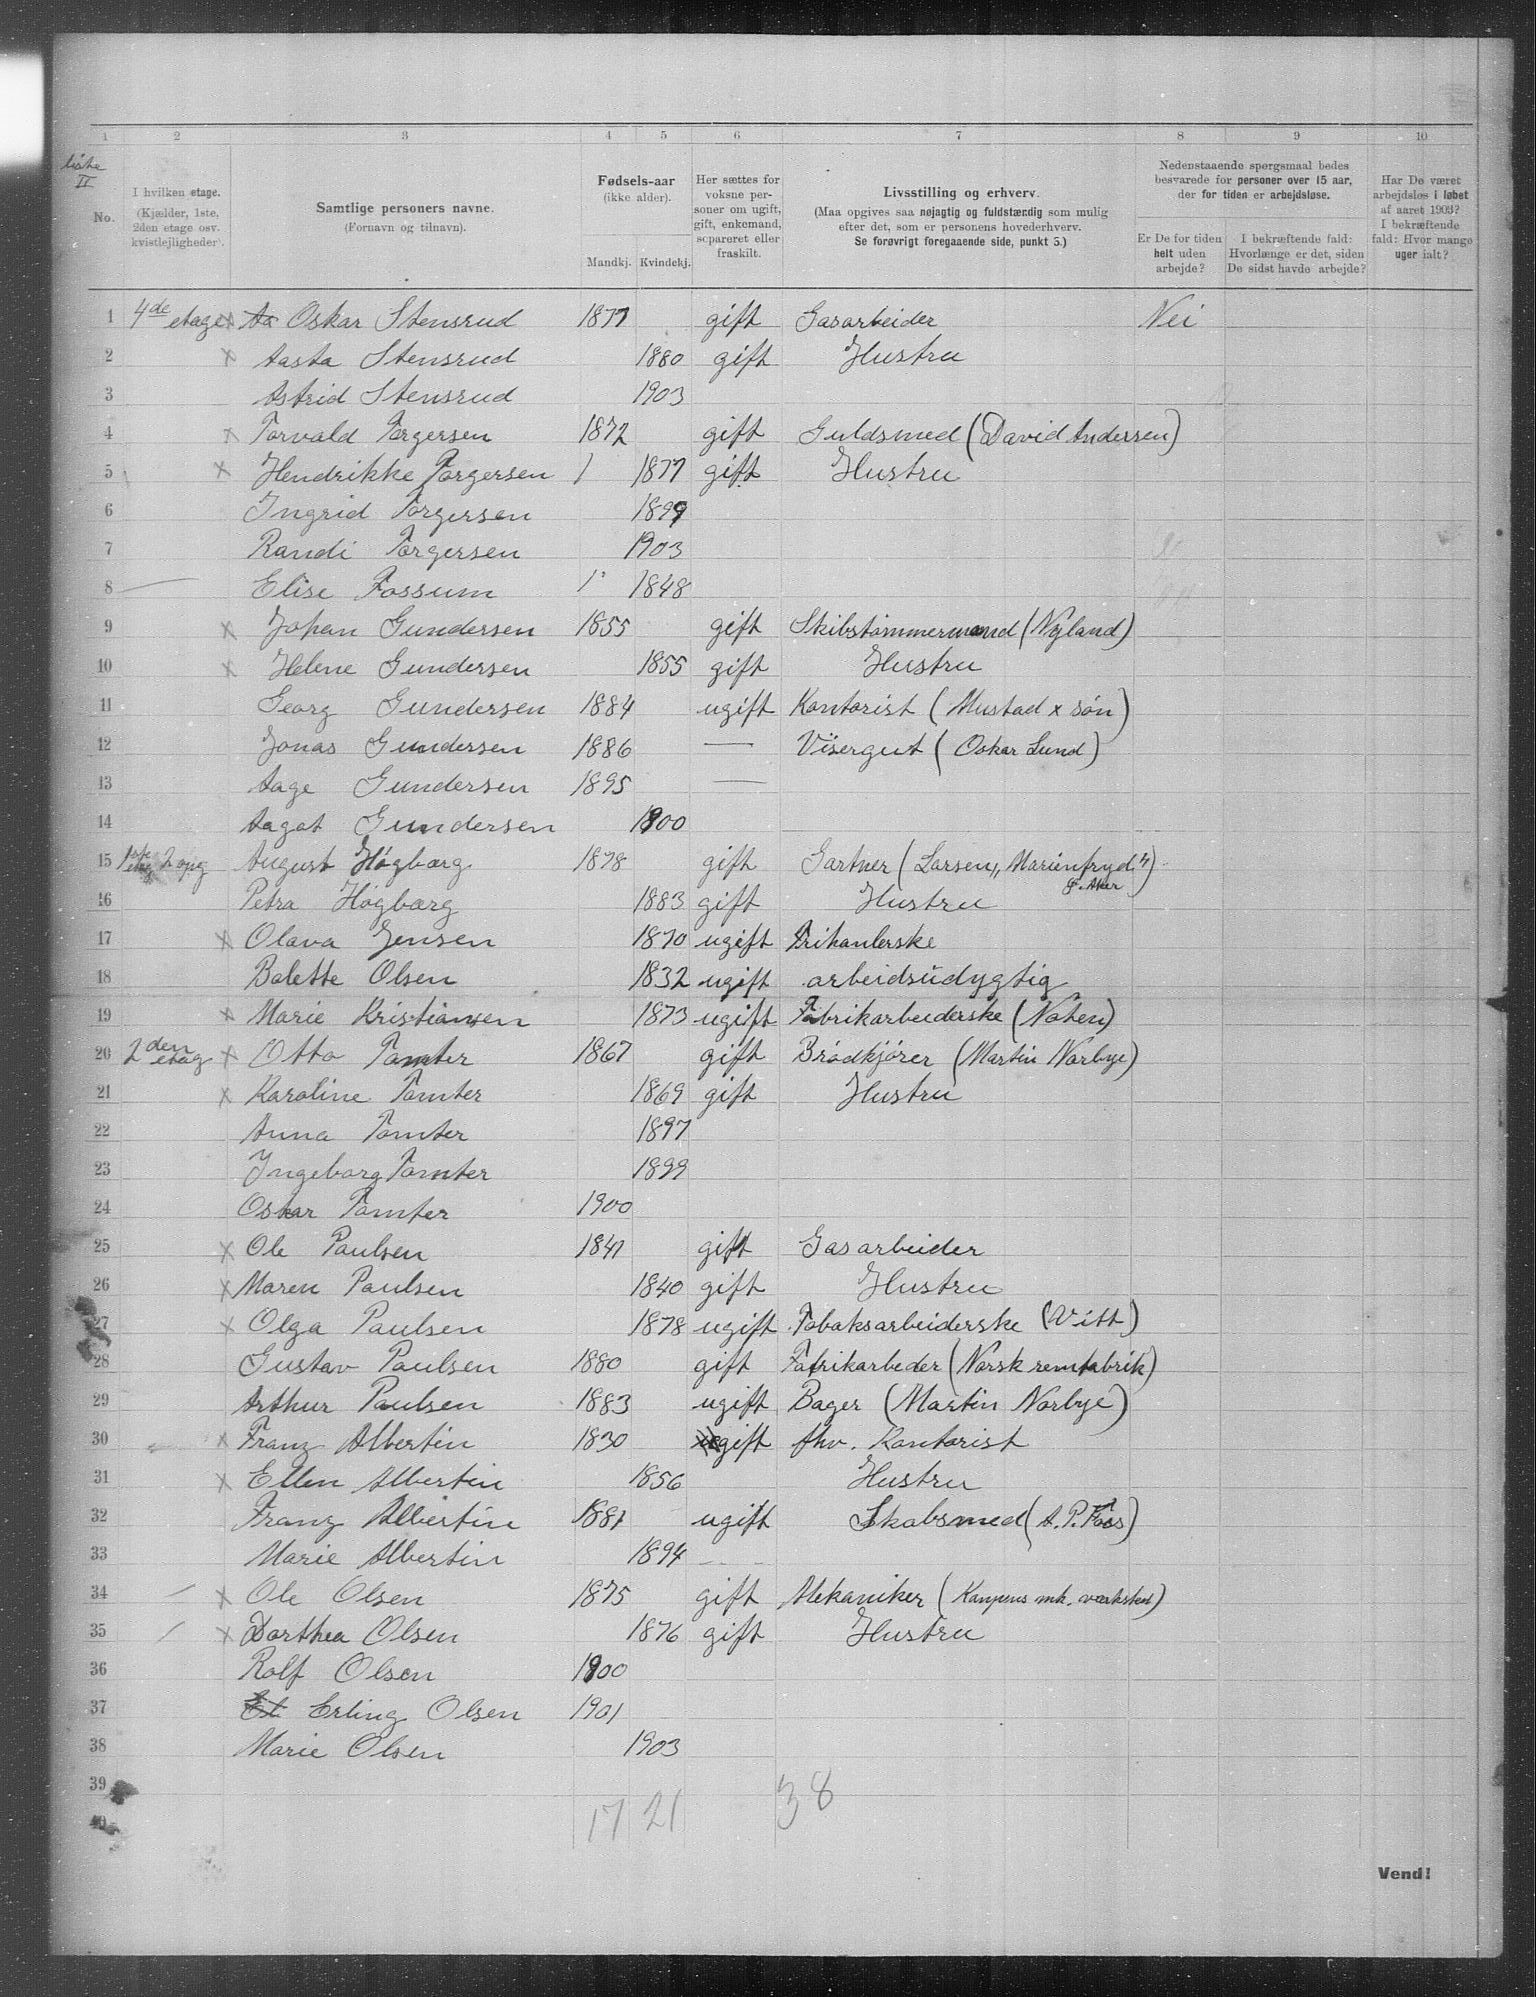 liste II
1 2 3 4 5 6 7 8 9 10
No.
I hvilken etage. (Kjælder, 1ste, 2den etage osv. kvistlejligheder).
Samtlige personers navne. (Fornavn og tilnavn).
Fødsels-aar (ikke alder). Mandkj. Kvindekj.
Her sættes for voksne personer om ugift, gift, enkemand, separeret eller fraskilt.
Livsstilling og erhverv. (Maa opgives saa nøjagtig og fuldstændig som mulig efter det, som er personens hovederhverv. Se forøvrigt foregaaende side, punkt 5.)
Nedenstaaende spørgsmaal bedes besvarede for personer over 15 aar, der for tiden er arbejdsløse.
Er De for tiden helt uden arbejde?
I bekræftende fald: Hvorlænge er det, siden De sidst havde arbejde?
Har De været arbejdsløs i løbet af aaret 1903? I bekræftende fald: Hvor mange uger ialt?
1 4de etage x Aa Oskar Stensrud 1877 gift Gasarbeider Nei
2 x Aasta Stensrud 1880 gift Hustru
3 Astrid Stensrud 1903
4 x Torvald Torgersen 1872 gift Guldsmed (David Andersen)
5 x Hendrikke Torgersen 1 1877 gift Hustru
6 Ingrid Torgersen 1899
7 Randi Torgersen 1903
8 Elise Fossum 1 1848
9 x Johan Gundersen 1855 gift Skibstømmermand (Nyland)
10 x Helene Gundersen 1855 gift Hustru
11 Georg Gundersen 1884 ugift Kontorist (Mustad x søn)
12 Jonas Gundersen 1886 — Visergut (Oskar Lund)
13 Aage Gundersen 1895 —
14 Aagot Gundersen 1900
15 1ste etag 2 opg August Høgbærg 1878 gift Gartner (Larsen „Marienfryd“)
Ø. Aker
16 Petra Høgbærg 1883 gift Hustru
17 x Olava Jensen 1870 ugift Frihanlerske
18 Bolette Olsen 1832 ugift arbeidsudygtig
19 x Marie Kristiansen 1873 ugift Fabrikarbeiderske (Nohen)
20 2den etag x Otto Tomter 1867 gift Brødkjører (Martin Norbye)
21 x Karoline Tomter 1869 gift Hustru
22 Anna Tomter 1897
23 Ingeborg Tomter 1899
24 Oskar Tomter 1900
25 x Ole Paulsen 1841 gift Gasarbeider
26 x Maren Paulsen 1840 gift Hustru
27 x Olga Paulsen 1878 ugift Tobaksarbeiderske (Vitt)
28 Gustav Paulsen 1880 gift Fabrikarbeder (Norsk remfabrik)
29 Arthur Paulsen 1883 ugift Bager (Martin Norbye)
30 x Franz Albertin 1830 gift fhv. Kontorist
31 x Ellen Albertin 1856 Hustru
32 Franz Albertin 1881 ugift Skabsmed (A. P. Foss)
33 Marie Albertin 1894
34 x Ole Olsen 1875 gift Mekaniker (Kampens mk. værksted)
35 x Dorthea Olsen 1876 gift Hustru
36 Rolf Olsen 1900
37 El Erling Olsen 1901
38 Marie Olsen 1903
39
40
17 21 38
Vend!